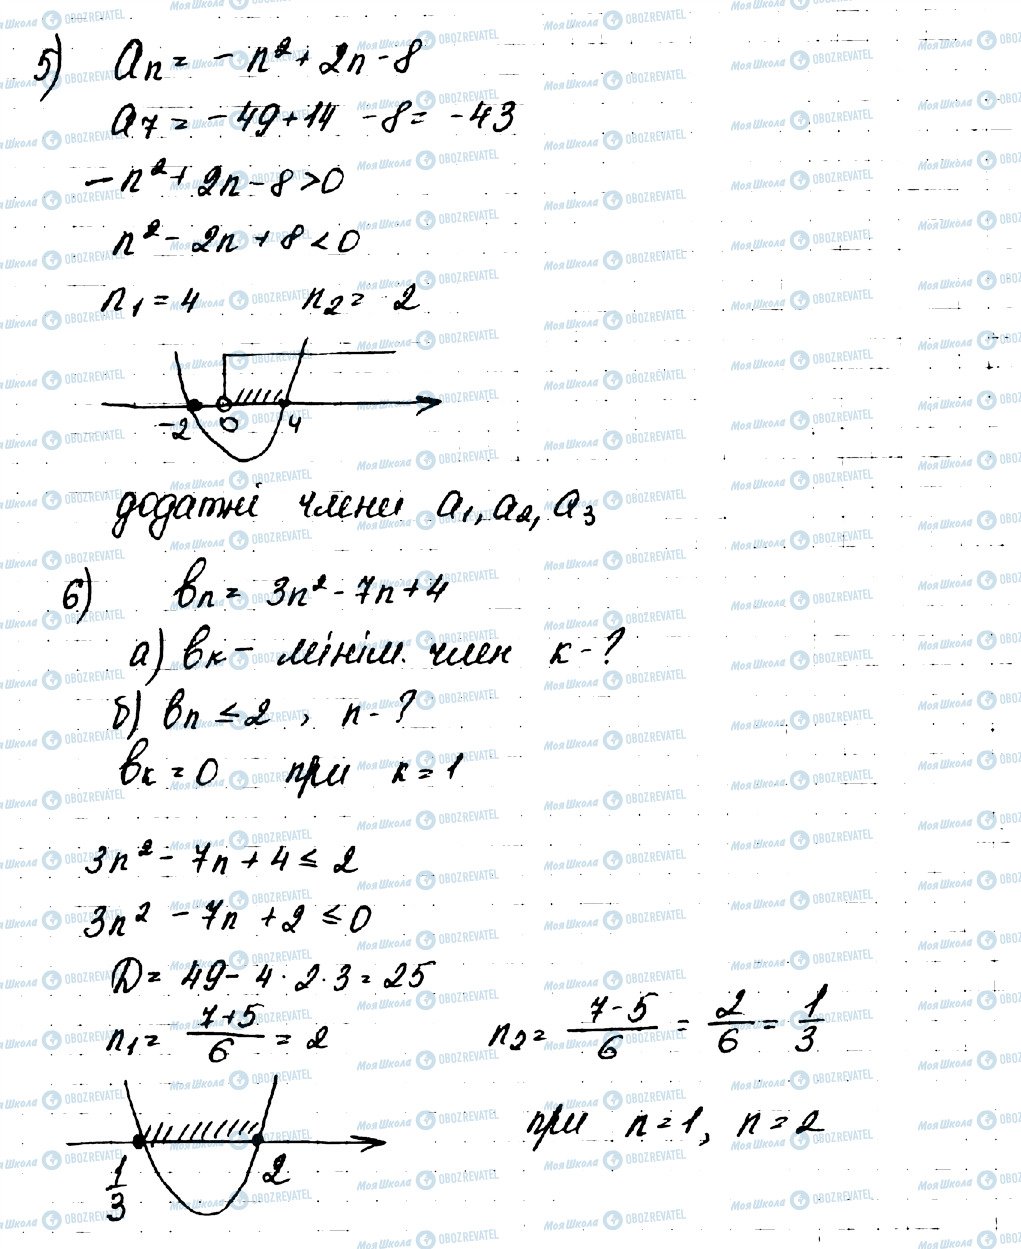 5) aₙ = -n² + 2n - 8
a₇ = -49 + 14 - 8 = -43
-n² + 2n - 8 > 0
n² - 2n + 8 < 0
n₁ = 4 n₂ = 2
-2 0 4
додатні члени a₁, a₂, a₃
6) bₙ = 3n² - 7n + 4
а) bₖ - мінім. член к - ?
б) bₙ ≤ 2, n - ?
bₖ = 0 при к = 1
3n² - 7n + 4 ≤ 2
3n² - 7n + 2 ≤ 0
D = 49 - 4 · 2 · 3 = 25
n₁ = (7+5)/6 = 2 n₂ = (7-5)/6 = 2/6 = 1/3
при n = 1, n = 2
1/3 2